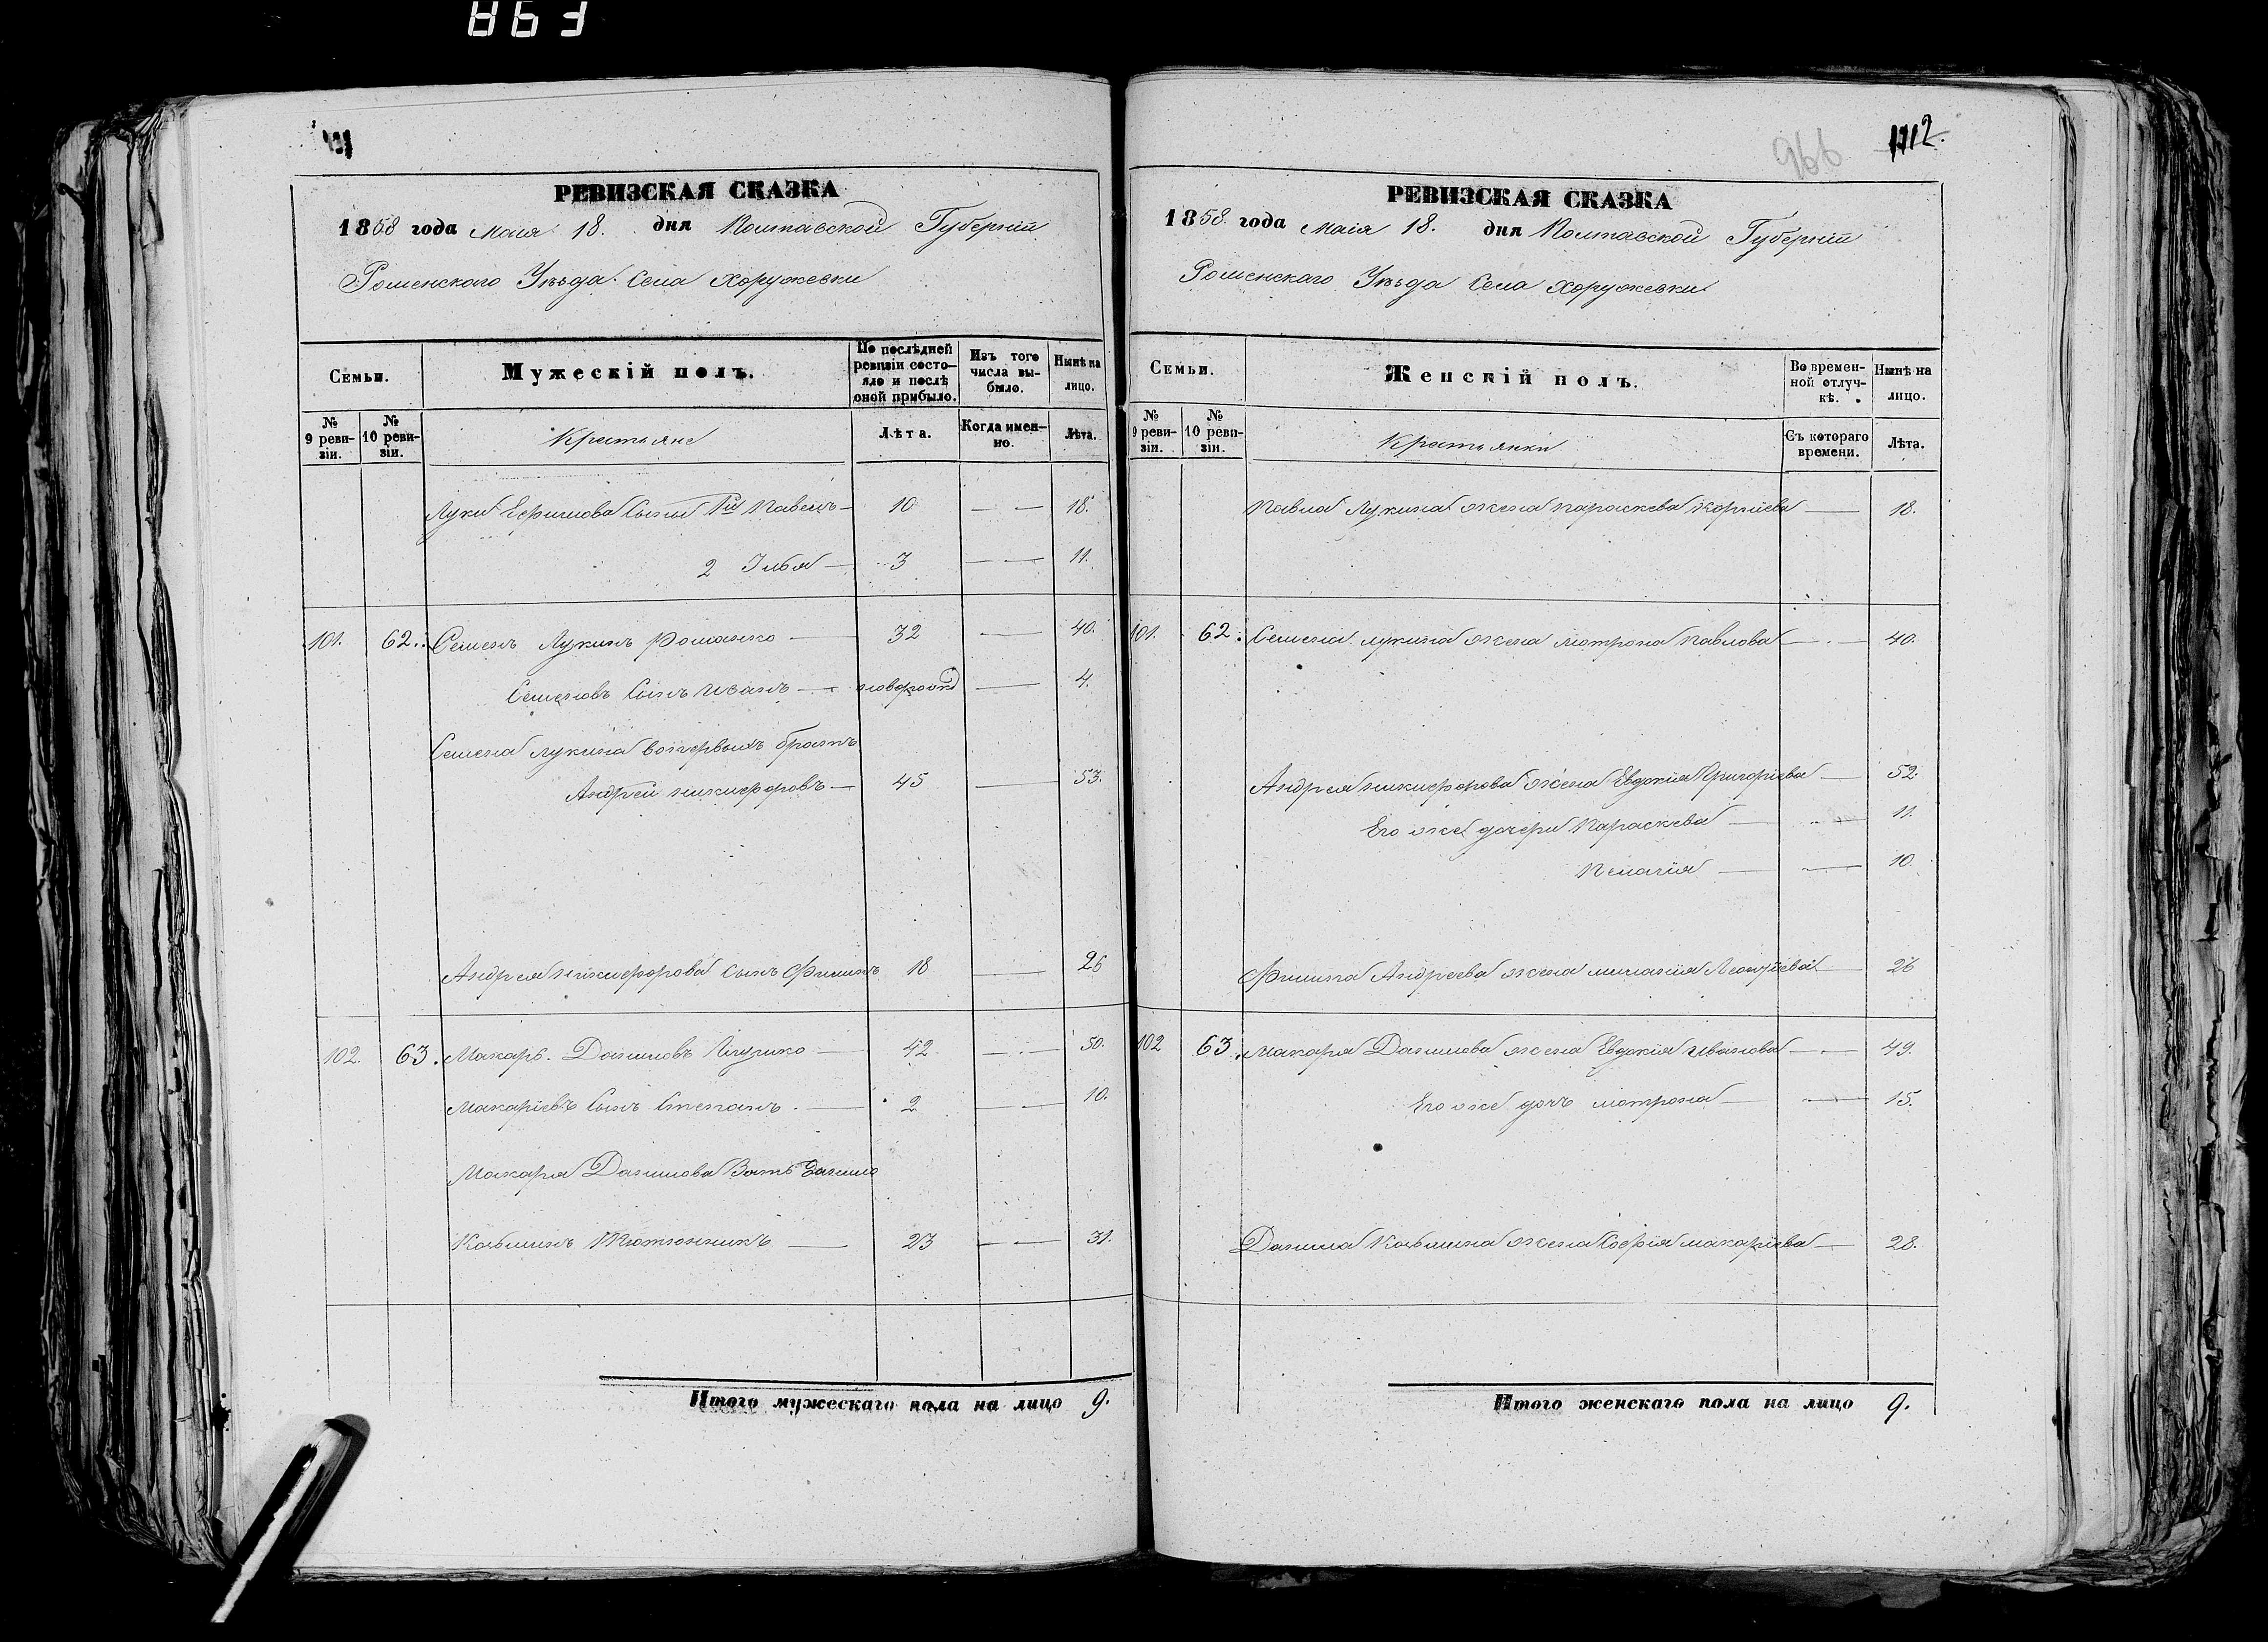 863
966
1112.
РЕВИЗСКАЯ СКАЗКА
1858 года Маія 18. дня Полтавской Губерніи
Роменского Уѣзда Села Хоружевки
Семьи.
Мужескій полъ.
По послѣдней ревизіи состояло и послѣ оной прибыло.
Изъ того числа выбыло.
Нынѣ на лицо.
№ 9 ревизіи.
№ 10 ревизіи.
Крестьяне
Лѣта.
Когда именно.
Лѣта.
Луки Ефимова Сыны 1й Павелъ — 10 — — 18.
2 Илья — 3 — — 11.
101. 62. Семенъ Лукинъ Романко — 32 — 40.
Семеновъ Сынъ Иванъ — новорожд — 4.
Семена Лукина воіпервыхъ братъ
Андрей Никифоровъ — 45 — 53.
Андрея Никифорова Сынъ Филипъ 18 — 26
102. 63. Макаръ Даниловъ — 42 — — 50.
Макаріевъ Сынъ Степанъ. — 2 — — 10.
Макара Данилова Зять Данило
Тютюнникъ — 23 — — 31.
Итого мужескаго пола на лицо 9.
РЕВИЗСКАЯ СКАЗКА
1858 года Маія 18. дня Полтавской Губерніи
Роменского Уѣзда Села Хоружевки
Семьи.
Женскій полъ.
Во временной отлучкѣ.
Нынѣ на лицо.
№ 9 ревизіи.
№ 10 ревизіи.
Крестьянки
Съ котораго времени.
Лѣта.
Павла Лукина жена Параскева Корніева — 18.
101. 62. Семена Лукина жена Мотрона Павлова — 40.
Андрея Никифорова жена Евдокія Григоріева — 52.
Его же дочери Параскева — — 11.
Пелагія — — 10.
Филипа Андреева жена Миланія Леонтіева — 26
102 63. Макара Данилова жена Евдокія Иванова — 49.
Его же дочь Мотрона — — 15.
Данила жена Софія Макаріева — 28.
Итого женскаго пола на лицо 9.